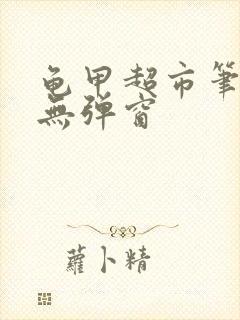 龟甲超市筆
無弹窗
蘿卜精